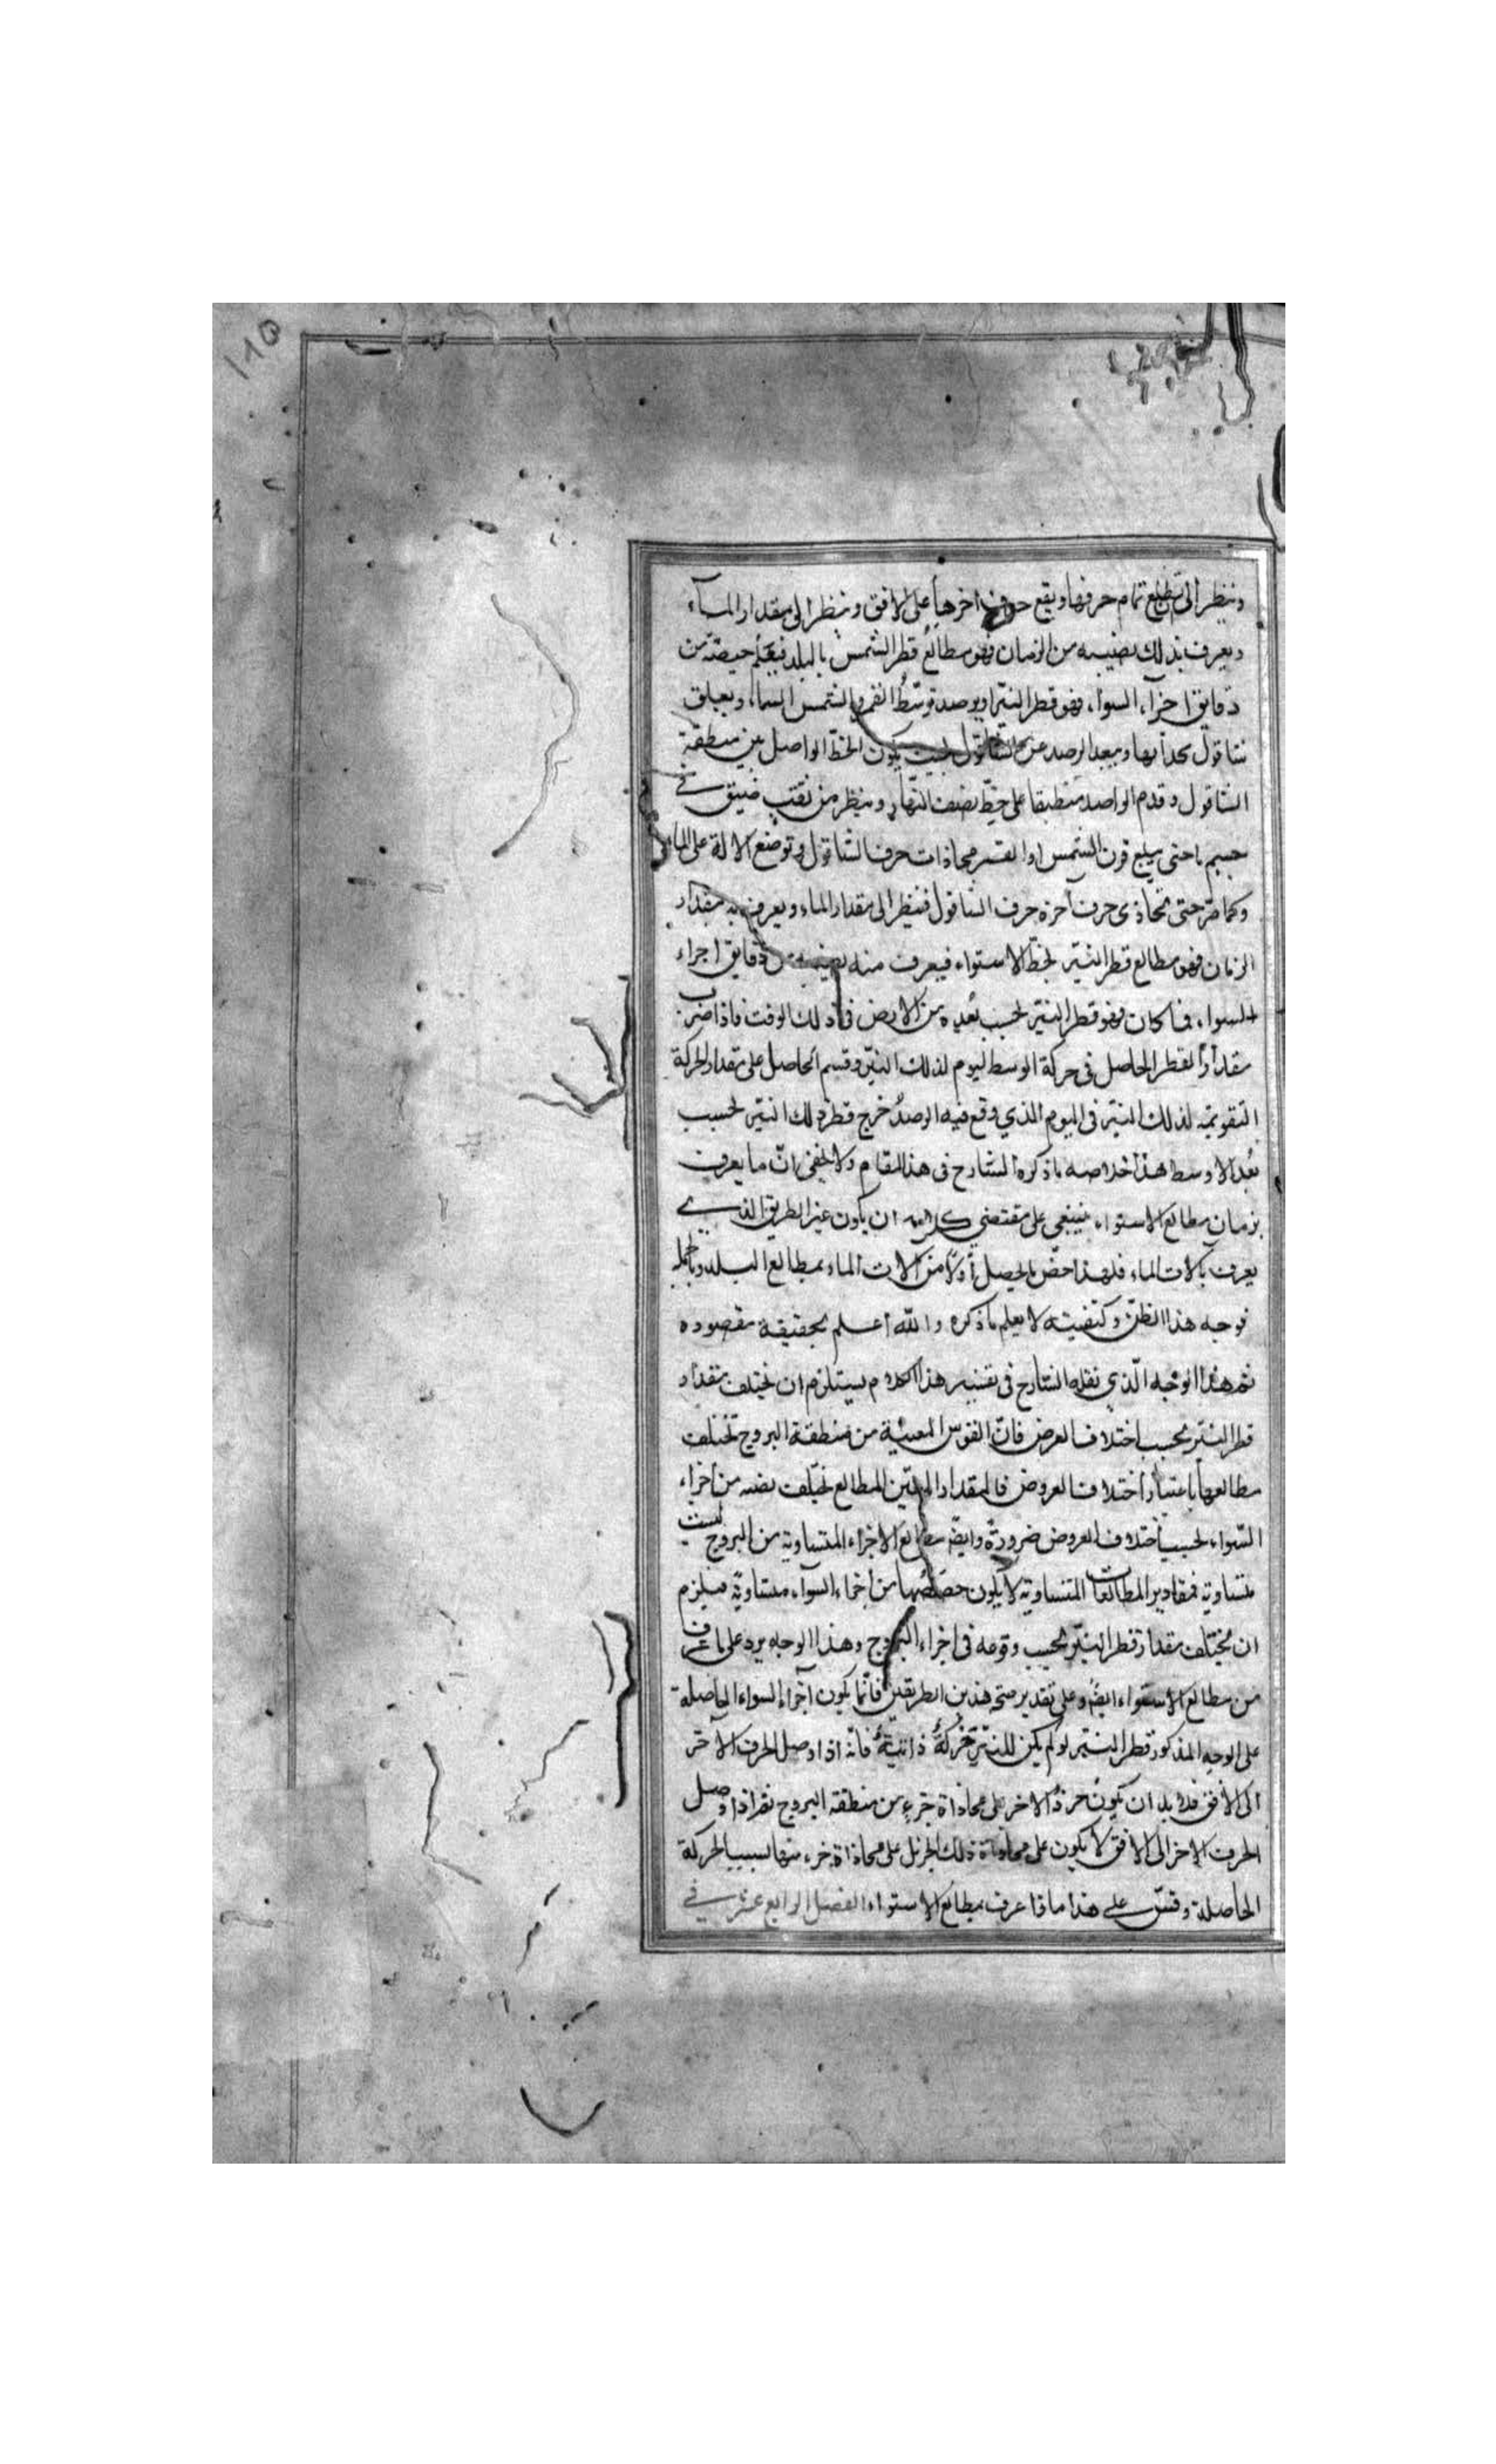 وننظر الى ان تطلع تمام حرفها ويقع حرف اخرها على الافق وننظر الى مقدار الماء
ويعرف بذلك نصيبه من الزمان فهو مطالع قطر الشمس بالبلد فيعلم حصته من
دقايق اجزآء السواء فهو قطر النير او يرصد توسط القمر والشمس السماء ويعلق
شاقول بحذائها ويبعد الرصد عن الشاقول بحيث يكون الخط الواصل بين منطقة
الشاقول وقدم الواصد منطبقا على خط نصف النهار وينظر من ثقب ضيق في
جسم ما حتى يبلغ قرن الشمس او القمر محاذات حرف الشاقول وتوضع الالة على الماء
وكما مر حتى تحاذى حرف آخره حرف الشاقول فننظر الى مقدار الماء ويعرف به مقدار
الزمان فهو مطالع قطر النير لخط الاستواء فيعرف منه نصيبه من دقايق اجزاء
السواء فما كان فهو قطر النير بحسب بعده من الارض فى ذلك الوقت فاذا ضرب
مقدار القطر الحاصل فى حركة الوسط ليوم لذلك النير وقسم الحاصل على مقدار الحركة
التقويمية لذلك النير فى اليوم الذي وقع فيه الرصد خرج قطر ذلك النير بحسب
بعد الاوسط هذا خلاصه ما ذكره الشارح فى هذا المقام ولا يخفى ان ما يعرف
بزمان مطالع الاستواء ينبغى على مقتضي كلامه ان يكون غير الطريق الذي
يعرف بآلات الماء فلهذا خص ما يحصل أولا من الات الماء بمطالع البلد وبالجمله
فوجه هذا الظن وكيفيته لا يعلم ما ذكره والله أعلم بحقيقة مقصوده
ثم هذا الوجه الذي نقله الشارح فى تفسير هذا الكلام يستلزم ان يختلف مقدار
قطر النير بحسب اختلاف العرض فان القوس المعينة من منطقة البروج تختلف
مطالعها باعتبار اختلاف العروض فالمقدار المعين للمطالع يختلف نصيبه من أجزاء
السواء بحسب اختلاف العروض ضرورة وايضا مطالع الاجزاء المتساوية من البروج ليست
متساوية فمقادير المطالعات المتساوية لا يكون حصصها من أجزاء السواء متساوية فيلزم
ان يختلف مقدار قطر النير بحسب وقوعه فى اجزاء البروج وهذا الوجه يرد على ما عرف
من مطالع الاستواء ايضا وعلى تقدير صحة هذين الطريقين فانما يكون اجزاء السواء الحاصلة
على الوجه المذكور قطر النير لو لم يكن للنير حركة ذاتية فانه اذا وصل الحرف الآخر
الى الافق فلا بد ان يكون حرفه الاخر على محاذاة جزء من منطقة البروج ثم اذا وصل
الحرف الاخر الى الافق لا يكون على محاذاة ذلك الجزء بل على محاذاة جزء منها بسبب الحركة
الحاصلة وقس على هذا ماذا عرف بمطالع الاستواء الفصل الرابع عشر في